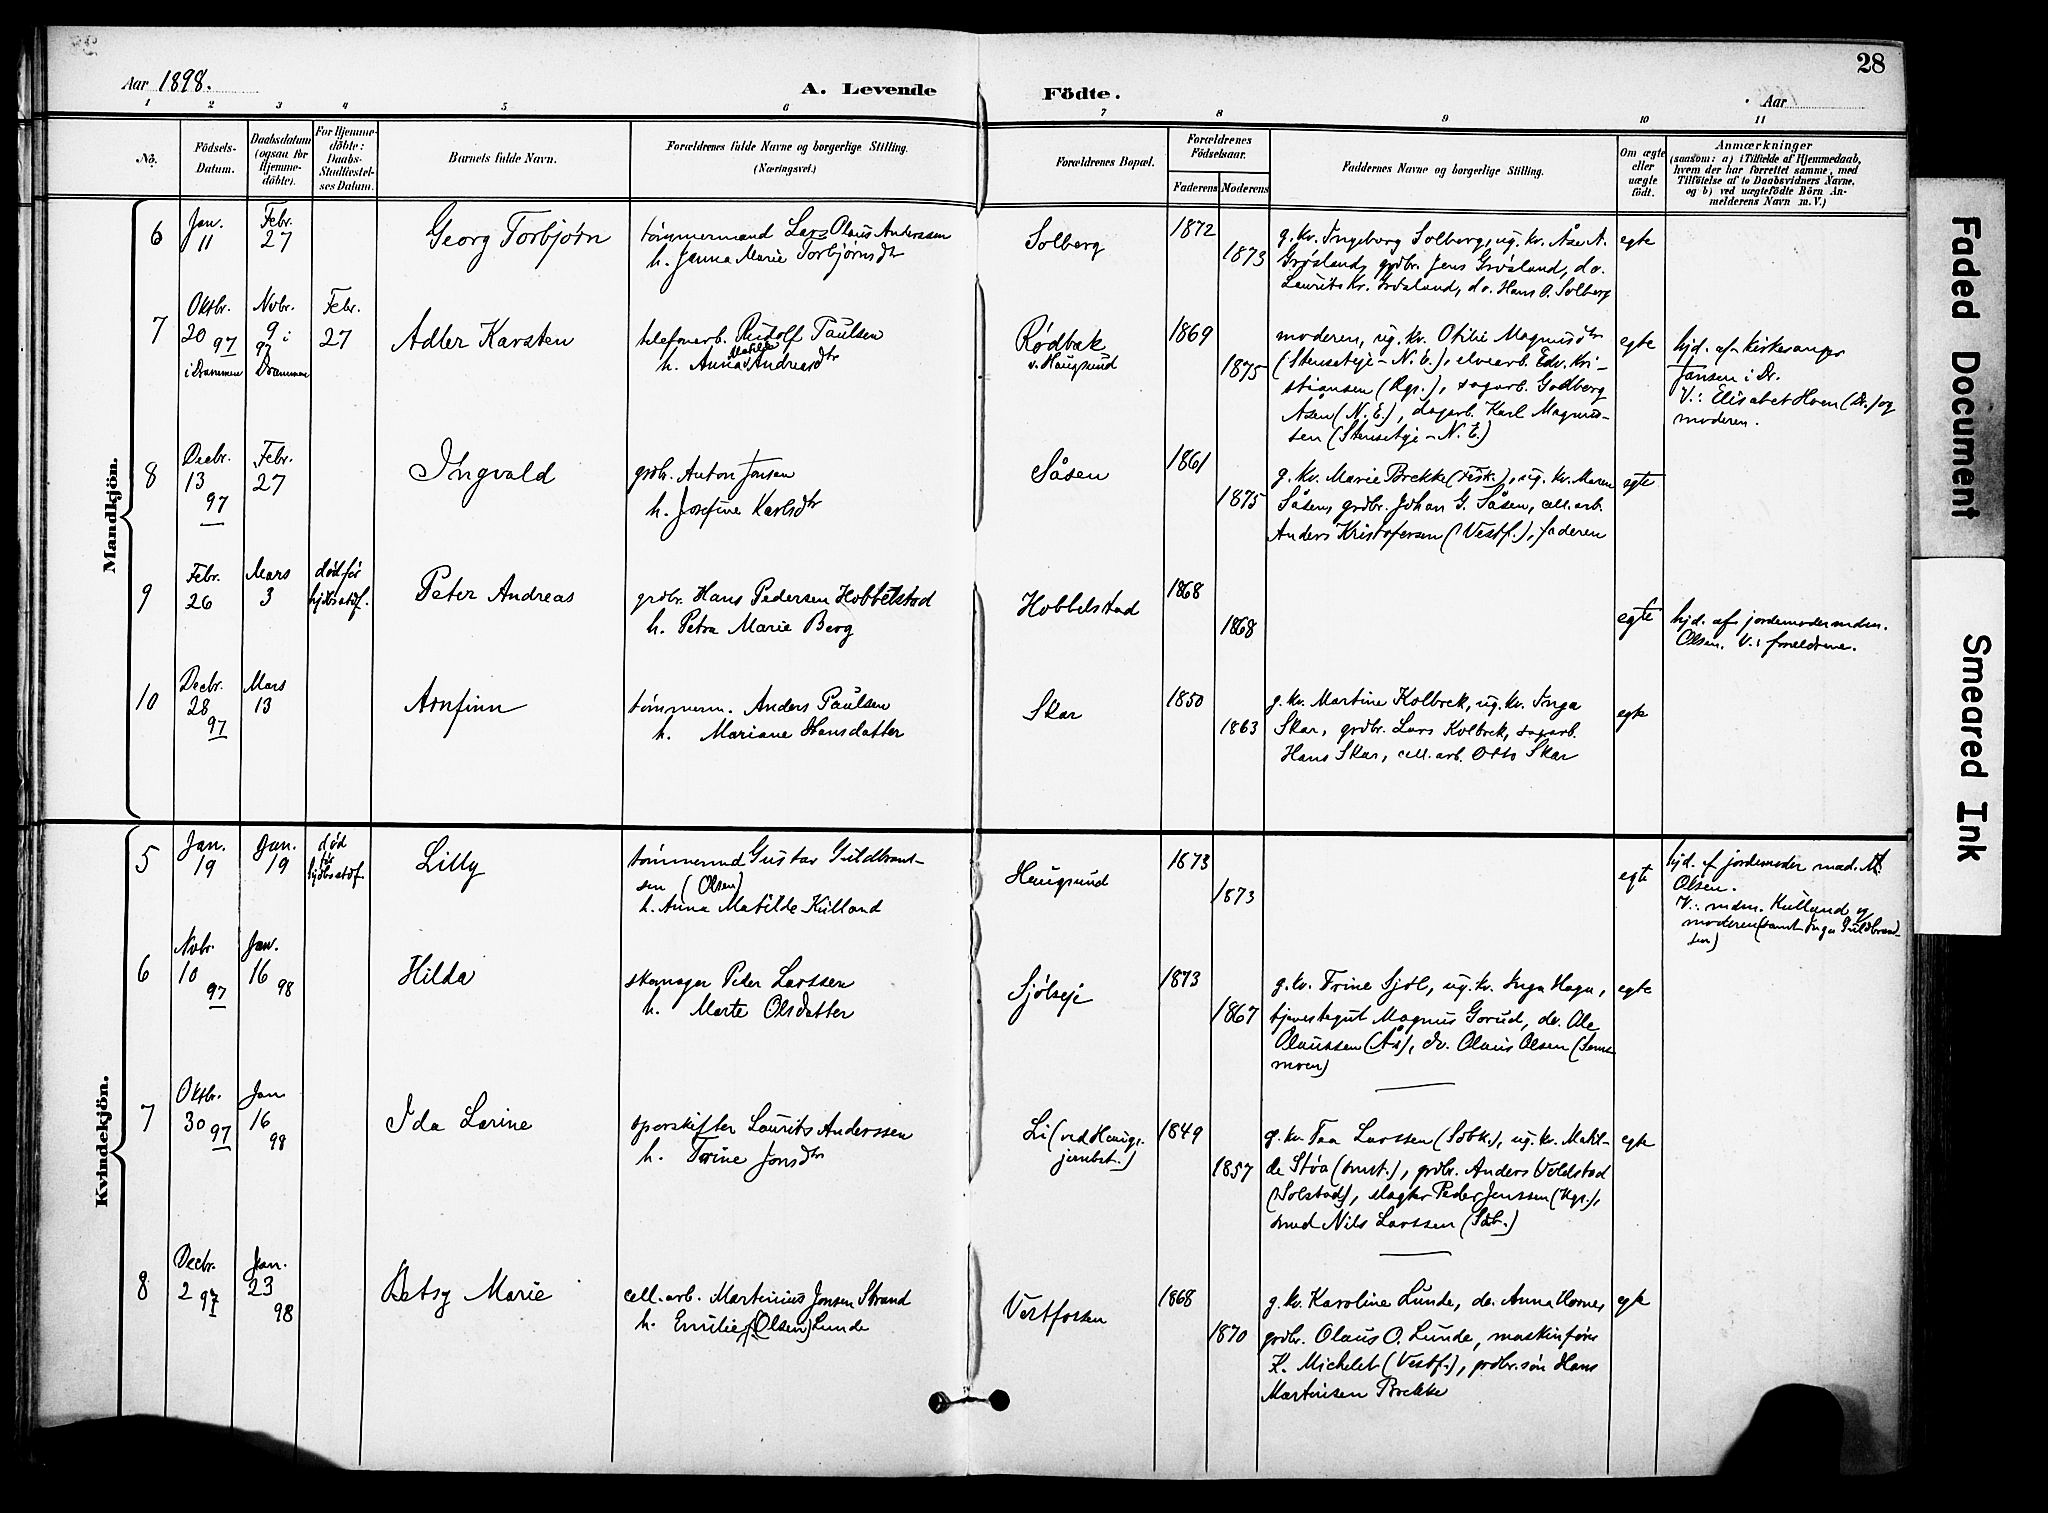 28
Aar 1898.
A. Levende Födte.
Aar
1 2 3 4 5 6 7 8 9 10 11
No.
Födsels-Datum.
Daabsdatum (ogsaa for Hjemme-döbte).
For Hjemme-döbte: Daabs-Stadfæstel-ses Datum.
Barnets fulde Navn.
Forældrenes fulde Navne og borgerlige Stilling. (Næringsvei.)
Forældrenes Bopæl.
Forældrenes Födselsaar.
Faderens Moderens
Faddernes Navne og borgerlige Stilling.
Om ægte eller uægte födt.
Anmærkninger
(saasom: a) i Tilfælde af Hjemmedaab,
hvem der har forrettet samme, med
Tilföielse af to Daabsvidners Navne,
og b) ved uægtefödte Börn An-
melderens Navn m. V.)
Mandkjön.
6
Jan. 11
Febr. 27
Georg Torbjørn
tømmermand Lars Olaus Anderssen
h. Janna Marie Torbjørnsdtr
Solberg
1872
1873
g. kv. Ingeborg Solberg, ug. kv. Åse A.
Grøsland, grdbr. Jens Grøsland, do.
Laurits Kr. Grøsland, do. Hans O. Solberg
egte
7
Oktbr. 20 97 i Drammen
Novbr. 9 i 97 Drammen
Febr. 27
Adler Karsten
telefonarb. Rudolf Paulsen
h. Anna Matilde Andreasdtr
Rødbæk
v. Haugsund
1869
1875
moderen, ug. kv. Otilie Magnusdtr
(Stenseteje - N. E.), elvearb. Edv. Kri-
stiansen (Hgs.), sagarb. Godberg
Åsen (N. E.), dagarb. Karl Magnus-
sen (Stenseteje - N. E.)
egte
hjd. af kirkesanger
Jansen i Dr.
V.: Elisabet Hoen (Dr.) og
moderen.
8
Decbr. 13 97
Febr. 27
Ingvald
grdbr. Anton Jonsen
h. Josefine Karlsdtr
Såsen
1861
1875
g. kv. Marie Brekke (Fisk.), ug. kv. Maren
Såsen, grdbr. Johan G. Såsen, cell. arb.
Anders Kristofersen (Vestf.), faderen
egte
9
Febr. 26
Mars 3
død før hjdbsstdf.
Peter Andreas
grdbr. Hans Pedersen Hobbelstad
h. Petra Marie Berg
Hobbelstad
1868
1868
egte
hjd. af jordemoder mdm.
Olsen. V.: foreldrene.
10
Decbr. 28 97
Mars 13
Arnfinn
tømmerm. Anders Paulsen
h. Mariane Hansdatter
Skar
1850
1863
g. kv. Martine Kolbrek, ug. kv. Inga
Skar, grdbr. Lars Kolbrek, sagarb.
Hans Skar, cell. arb. Otto Skar
egte
Kvindekjön.
5
Jan. 19
Jan. 19
død før hjdbsstdf.
Lilly
tømmermd Gustav Guldbrand-
sen (Olsen)
h. Anna Matilde Kulland
Haugsund
1873
1873
egte
hjd. af jordemoder mad. M.
Olsen.
V.: mdm. Kulland og
moderen (samt Inga Guldbrand-
sen)
6
Novbr. 10 97
Jan. 16 98
Hilda
skomager Peder Larssen
h. Marte Olsdatter
Sjølseje
1873
1867
g. kv. Trine Sjøl, ug. kv. Inga Haga,
tjenestegut Magnus Gorud, do. Ole
Olaussen (Ås), do. Olaus Olsen (Sems-
moen)
egte
7
Oktbr. 30 97
Jan 16 98
Ida Larine
sporskifter Laurits Anderssen
h. Trine Jonsdtr
Li (ved Haugs.
jernbst.)
1849
1857
g. kv. Taa Larssen (Sdbk.), ug. kv. Matil-
de Støa (smst.), grdbr. Anders Voldstad
(Solstad), slagter Peder Jenssen (Hgs.),
smed Nils Larssen (Sdb.)
egte
8
Decbr. 2 97
Jan. 23 98
Betsy Marie
cell. arb. Martinius Jonsen Strand
h. Emilie (Olsen) Lunde
Vestfossen
1868
1870
g. kv. Karoline Lunde, do. Anna Hornes
grdbr. Olaus O. Lunde, maskinfører
K. Michelet (Vestf.), grdbr.søn Hans
Martinsen Brekke
egte
Faded Document
Smeared Ink